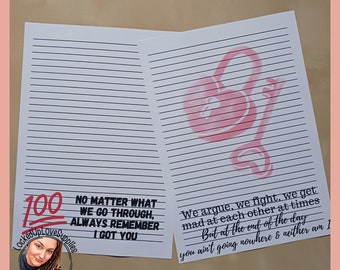 100
NO MATTER WHAT
WE GO THROUGH,
ALWAYS REMEMBER
I GOT YOU
We argue, we fight, we get
mad at each other at times
But at the end of the day
you ain't going nowhere & neither am I
LockedUpLoveSupplies